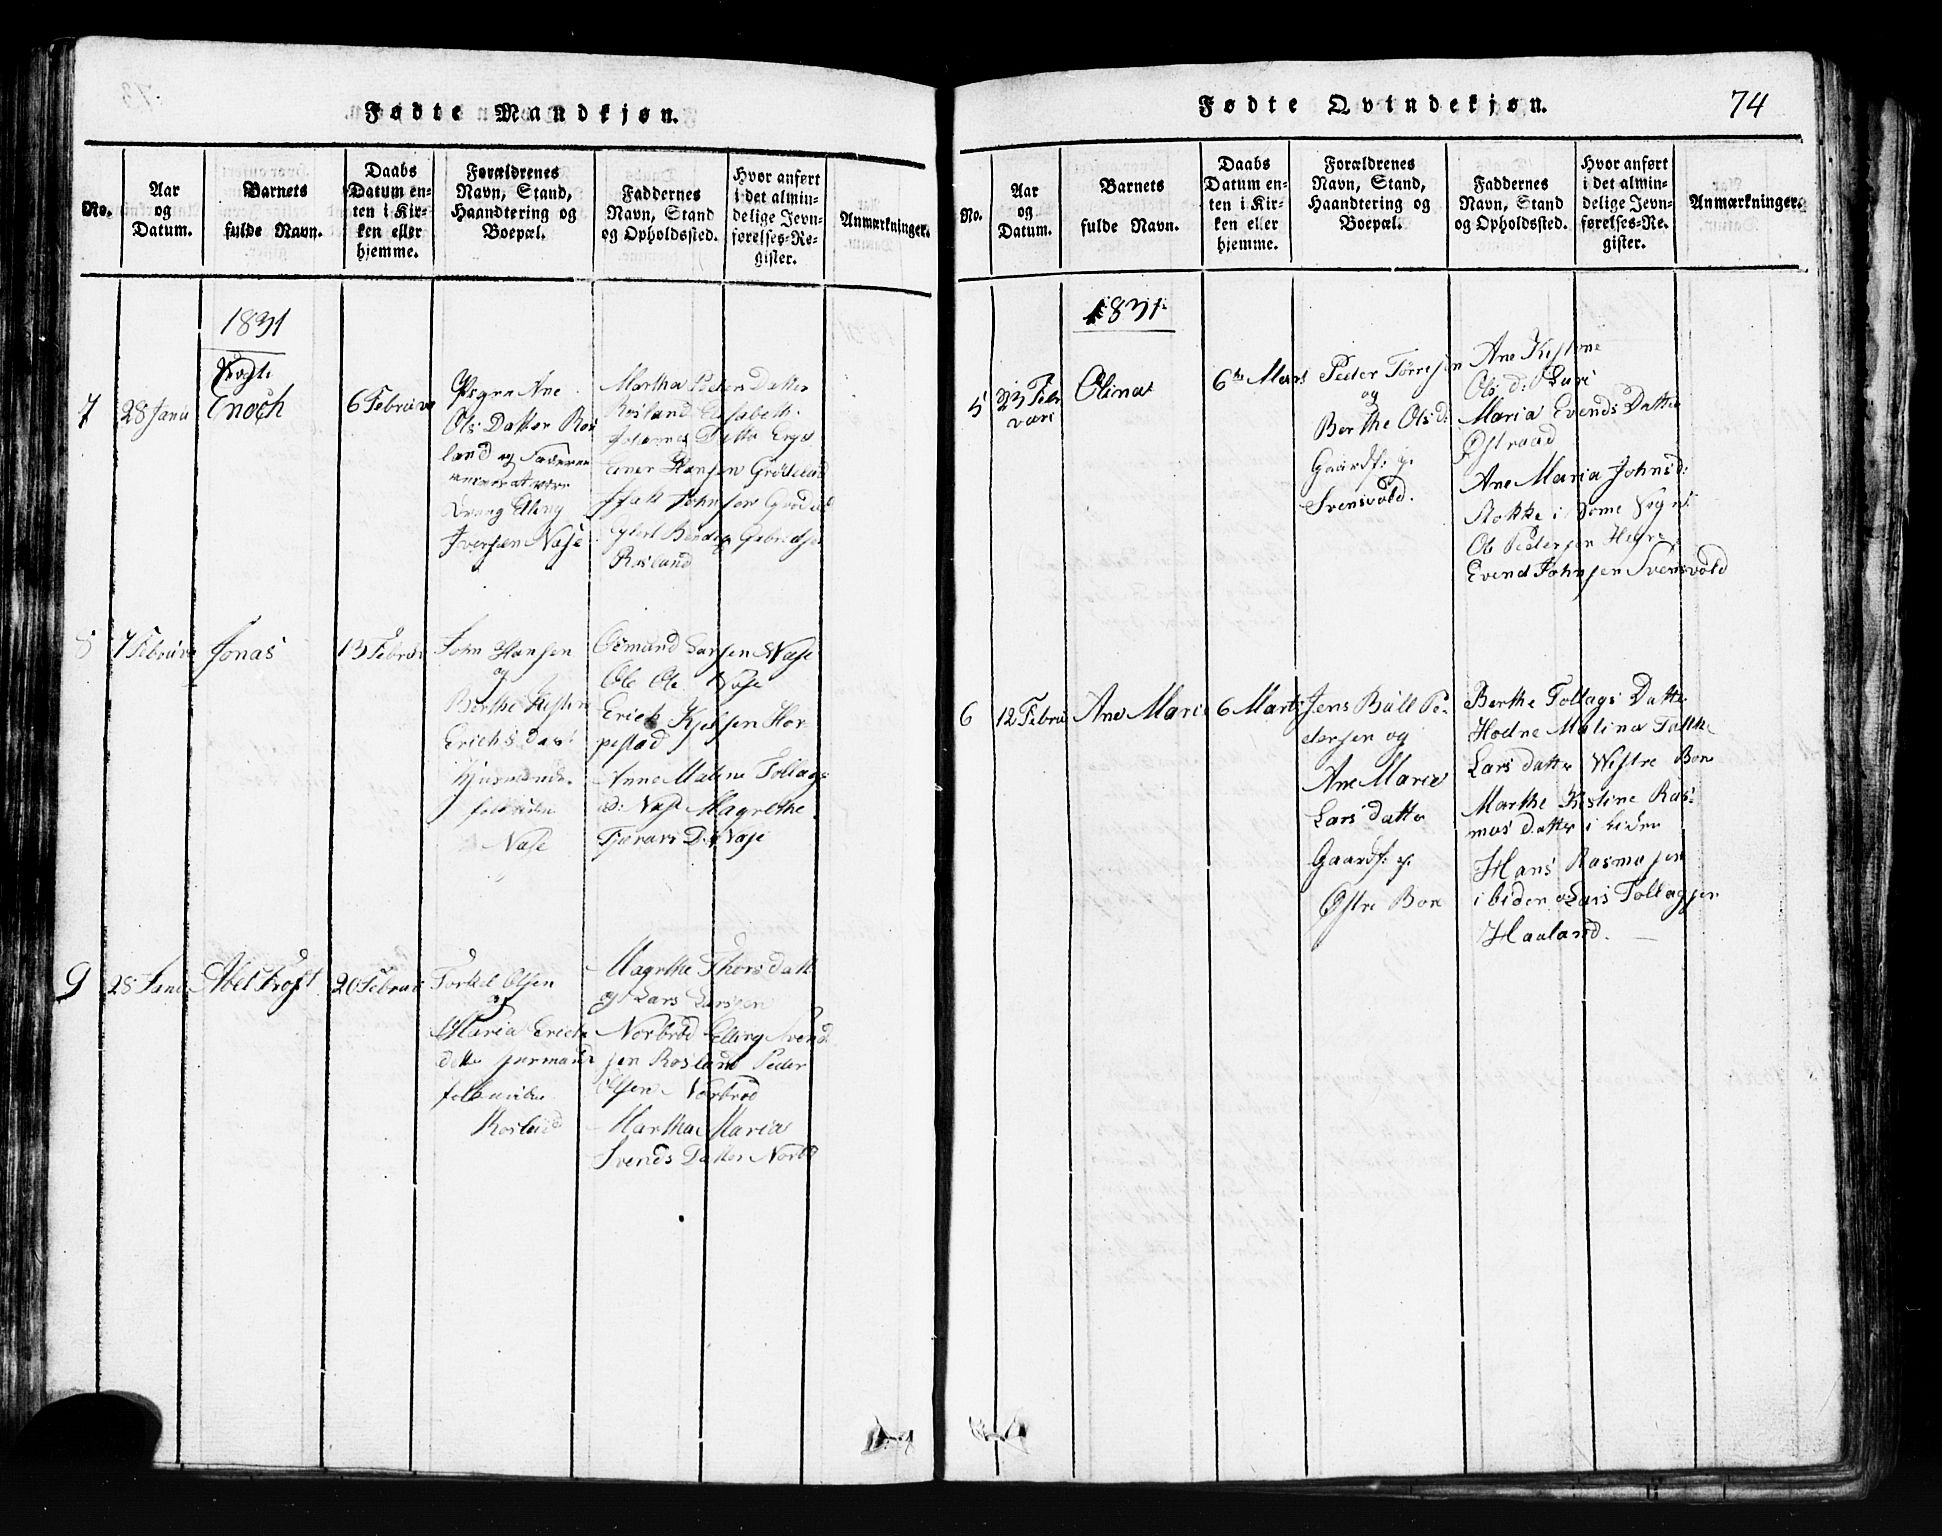 Fødte Mandkjøn.
No.
Aar
og
Datum.
Barnets
fulde Navn.
Daabs
Datum en-
ten i Kir-
ken eller
hjemme.
Forældrenes
Navn, Stand,
Haandtering og
Boepæl.
Faddernes
Navn, Stand
og Opholdssted.
Hvor anført
i det almin-
delige Jevn-
førelses-Re-
gister.
Anmærkninger.
1831
7
28 Janu
Enoch
6 Februar
Pigen Ane
Ols Datter Ros
land og
Elling
Iversen Nase
Martha Peder Datter
Rosland Elisabeth
Einer Hansen Grødeland
Rosland
8
7 Februar
Jonas
13 Februar
John Hansen
og
Berthe
Erichs Dat:
Nase
Osmund Larsen Nase
Ole Ols Nase
Erich
pestad
Anne Malene Tollags
d: Nase Magrethe
D. Nase
9
28 Janu
Abel Frost
20 Februar
Torkel Olsen
og
Maria Erichs
datter
Rosland
Magrethe Thors datt
og Lars Larssen
Norbrød Elling Svend
sen Rosland Peder
Olsen Norbrød
Martha Maria
Svends Datter Norb
Fødte Qvindekjøn.
74
No.
Aar
og
Datum.
Barnets
fulde Navn.
Daabs
Datum en-
ten i Kir-
ken eller
hjemme.
Forældrenes
Navn, Stand,
Haandtering og
Boepæl.
Faddernes
Navn, Stand
og Opholdssted.
Hvor anført
i det almin-
delige Jevn-
førelses-Re-
gister.
Anmærkninger.
1831.
5
23 Febr
vari
Olina
6te Marts
Peder Tørresen
og
Berthe Ols d:
Gaardf: p.
Svensvold.
Ane Kistine
Ols: d:
Maria Evends Datter
Østraad
Ane Maria Johns d:
Stokke i
Ole Pedersen Hegre
Evend Johnsen Svensvold
6
12 Febru
Ane Maria
6 Marts
Jens Bull Pe-
dersen og
Ane Maria
Lars datter
Gaardf: p.
Østre Bore
Berthe Tollags Datter
Hodne Malina
Lars datter Westre Bore
Marthe Kistine Ras-
mus datter i Liden
Hans Rasmusen
i Liden Lars Tollagsen
Haaland.